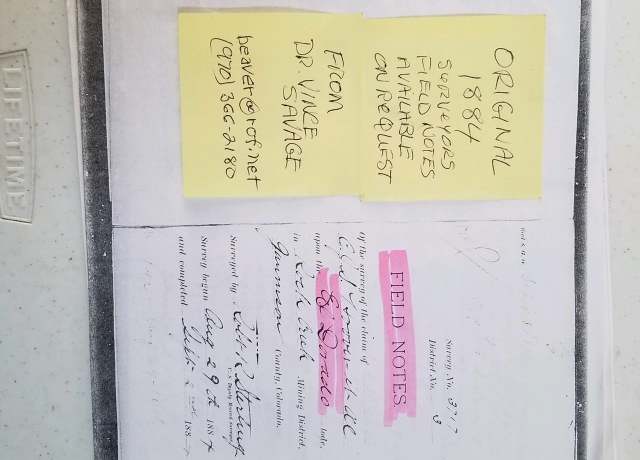 ORIGINAL
1884
SURVEYORS
FIELD NOTES
AVAILABLE
ON REQUEST
FROM
DR. VINCE
SAVAGE
beaver@rof.net
(970) 366-2180
Survey No. 3717
District No. 3
FIELD NOTES
Of the survey of the claim of
upon the El Dorado Lode,
in Rock Creek Mining District,
Gunnison County, Colorado.
Surveyed by
U.S. Deputy Mineral Surveyor
Survey begun Aug 29th 188
and completed Sept 2 188
LIFETIME